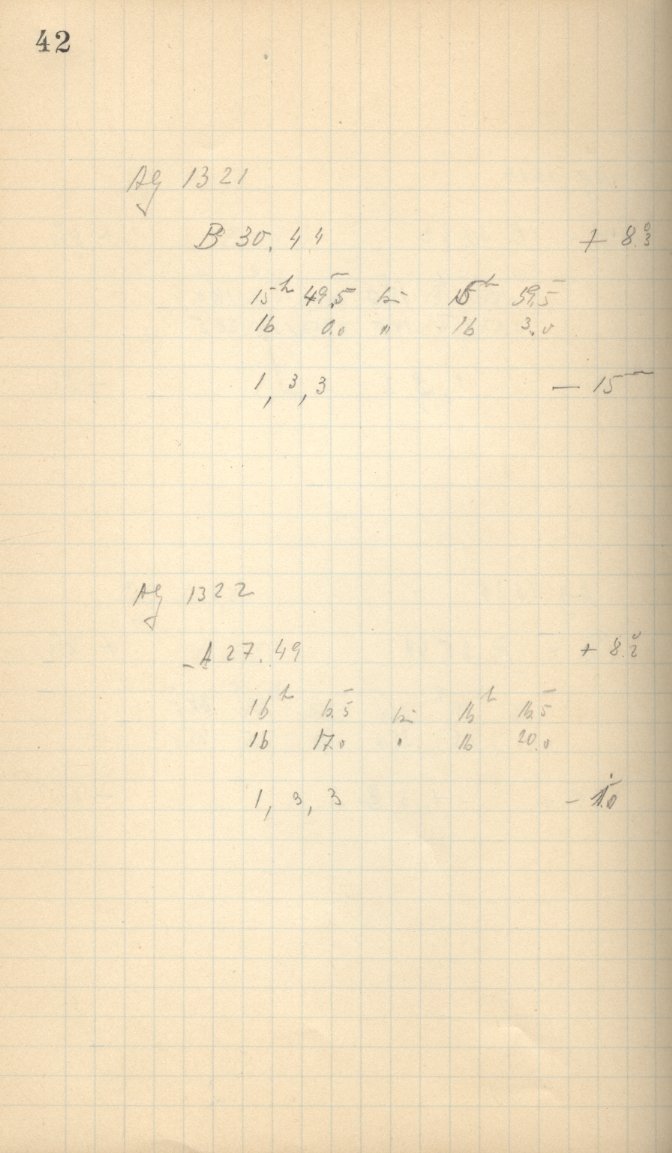 42
Ag 1321
B 30.44 + 8°.3
15h 49m.5 bis 15h 59m.5
16 0.0 " 16 3.0
1, 3, 3 — 15m
Ag 1322
A 27.49 + 8°.2
16h 6m.5 bis 16h 16m.5
16 17.0 " 16 20.0
1, 3, 3